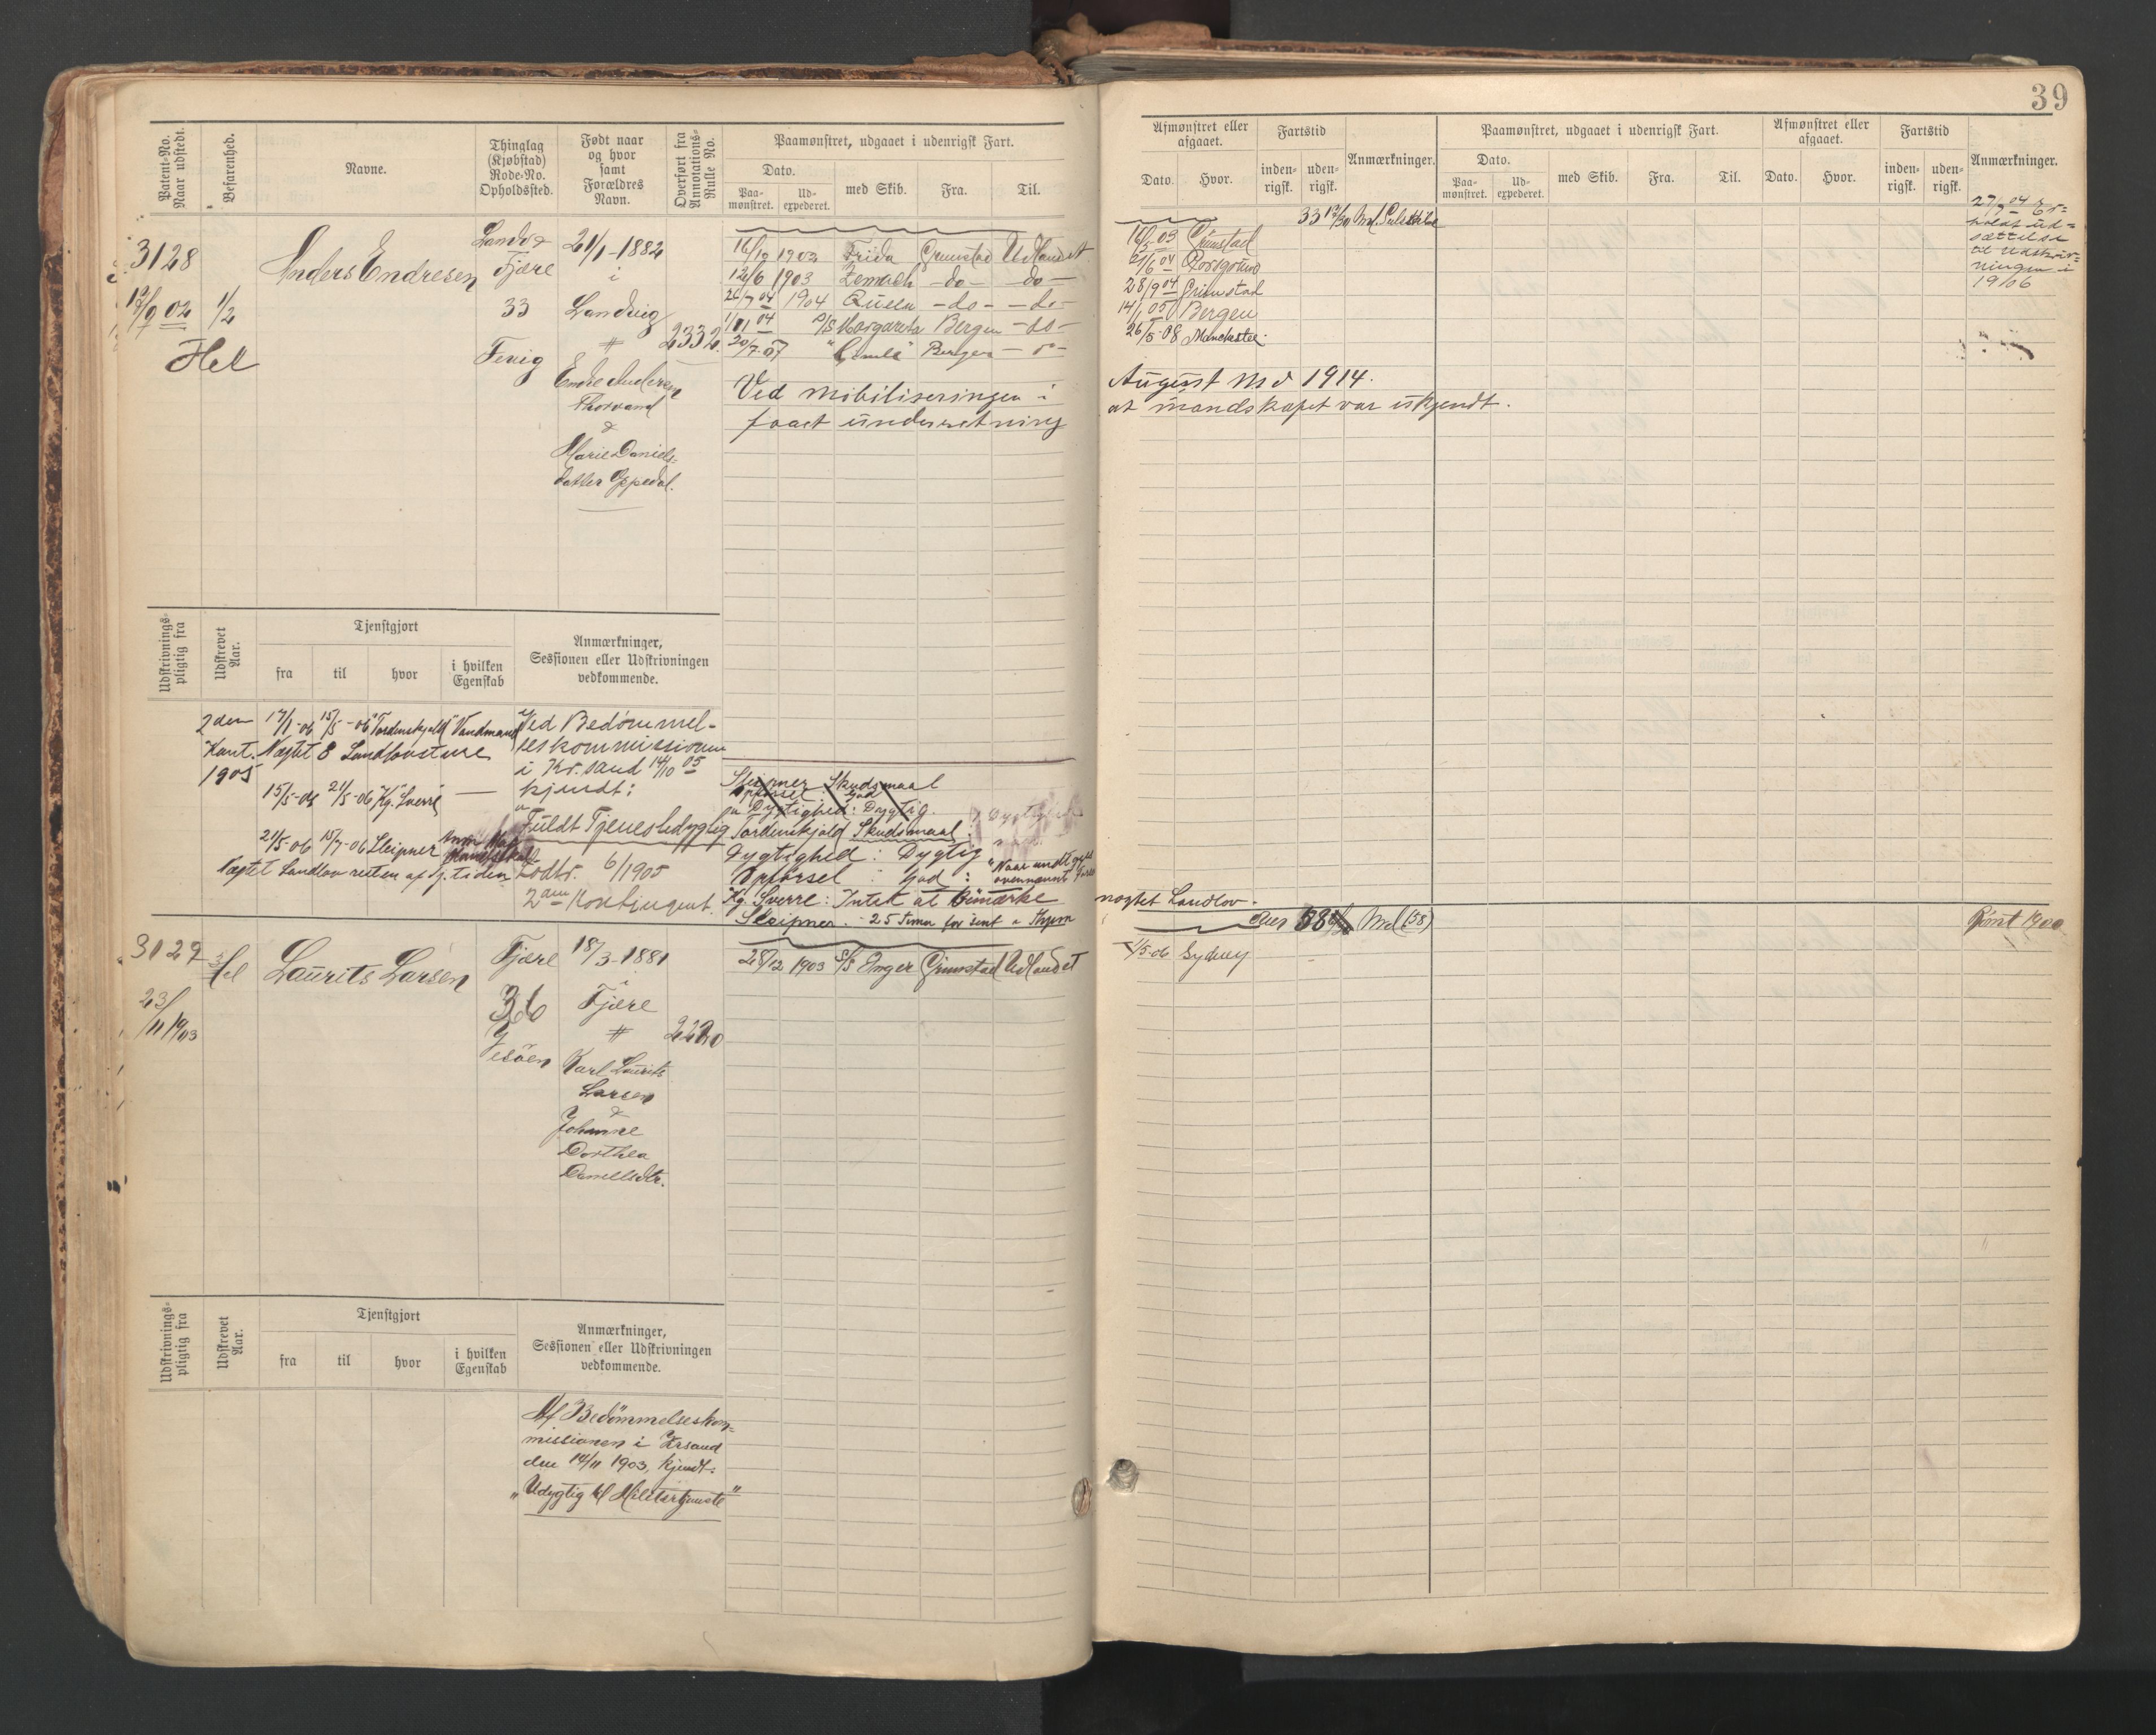 39
Patent-No. Naar udstedt.
Befarenhed.
Navne.
Thinglag (Kjøbstad) Rode-No. Opholdssted.
Født naar og hvor samt Forældres Navn.
Overført fra Annotations-Rulle No.
Paamønstret, udgaaet i udenrigsk Fart.
Dato.
Paa-mønstret.
Ud-expederet.
med Skib.
Fra.
Til.
Afmønstret eller afgaaet.
Dato.
Hvor.
Fartstid
inden-rigsk.
uden-rigsk.
Anmærkninger.
Paamønstret, udgaaet i udenrigsk Fart.
Dato.
Paa-mønstret.
Ud-expederet.
med Skib.
Fra.
Til.
Afmønstret eller afgaaet.
Dato.
Hvor.
Fartstid
inden-rigsk.
uden-rigsk.
Anmærkninger.
3128
12/9 02
1/2
Hel
Anders Endresen
Fjære
33
Fevig
21/1-1882
i
Landvig
#
Endre Andersen
Thorvand
&
Marie Daniels-
datter Eppedal.
2332.
16/10 1902 Frida Grimstad Udlandet
12/6 1903 Zemach -do- -do-
26/7 04 1904 -do- -do-
1/11 04 S/S Margareta Bergen -do-
20/7.07 Bergen
Ved mobiliseringen i
faaet underretning
16/5 03 Grimstad
21/6 04 Porsgrund
28/9 04 Grimstad
14/1 05 Bergen
26/5-08 Manchester
August Md 1914.
at mandskapet var ukjendt.
27/7 04 Er-
holdt ud-
sættelse
til Udskriv-
ningen i
1906
Udskrivnings-pligtig fra
Udskrevet Aar.
Tjenstgjort
fra
til
hvor
i hvilken Egenskab
Anmærkninger, Sessionen eller Udskrivningen vedkommende.
2den
Kont.
1905
17/1-06 15/5-06 "Tordenskjold" Vandmand
Nægtet 8 Landlovsture
15/5-06 21/5-06 Kg. Sverre —
21/5-06 15/7-06 Sleipner
Nægtet Landlov resten af tj. tiden
Ved Bedømmel-
seskommissionen
i Kr.sand 14/10 05
kjendt:
Fuldt Tjenestedygtig
Lodtr. 6/1905
2den Kontingent.
Sleipner Skudsmaal
Opførsel: God
Dygtighed: Dygtig.
Tordenskjold Skudsmaal:
Dygtighed: Dygtig
Opførsel: God:
Kg. Sverre: Intet at bemærke
Sleipner. - 25 Timer for sent
nægtet Landlov.
3129
23/11 1903
Laurits Larsen
Fjære
36
Jesøen
18/3-1881
i
Fjære
#
Karl Laurits
Larsen
&
Johanne
Dorthea
Danielsdtr.
28/12 1903 S/S Inger Grimstad Udlandet
1/5-06 Sydney
Udskrivnings-pligtig fra
Udskrevet Aar.
Tjenstgjort
fra
til
hvor
i hvilken Egenskab
Anmærkninger, Sessionen eller Udskrivningen vedkommende.
Af Bedømmelseskom-
missionen i Krsand
den 14/11 1903, kjendt:
"Udygtig til Militærtjeneste"